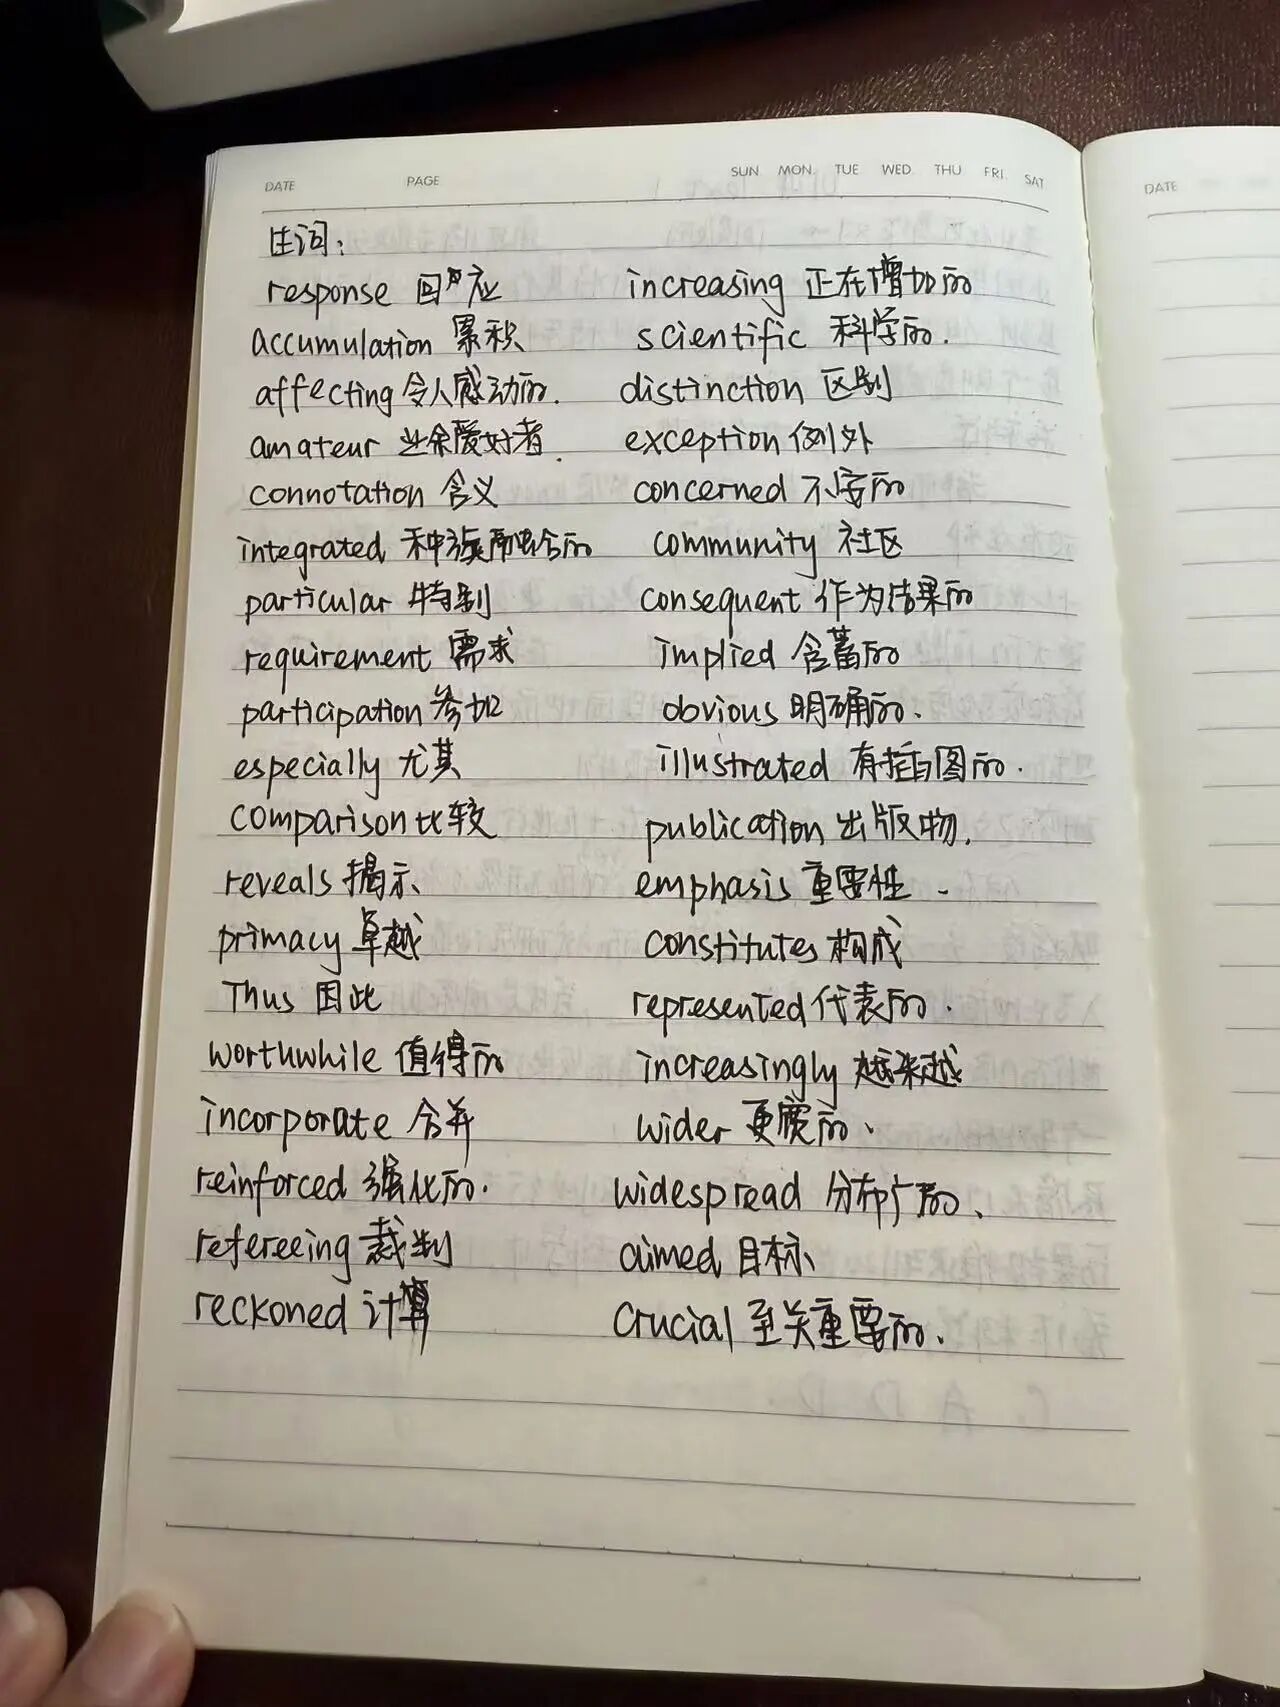 DATE PAGE SUN MON. TUE WED. THU FRI. SAT
DATE
生词:
response 回应 increasing 正在增加的
accumulation 累积 scientific 科学的.
affecting 令人感动的. distinction 区别
amateur 业余爱好者. exception 例外
connotation 含义 concerned 不安的
integrated 种族融合的 community 社区
particular 特别 consequent 作为结果的
requirement 需求 implied 含蓄的
participation 参加 obvious 明确的.
especially 尤其 illustrated 有插图的.
comparison 比较 publication 出版物.
reveals 揭示 emphasis 重要性.
primacy 卓越 constitutes 构成
Thus 因此 represented 代表的.
worthwhile 值得的 increasingly 越来越
incorporate 合并 wider 更宽的.
reinforced 强化的. widespread 分布广的.
refereeing 裁判 aimed 目标
reckoned 计算 crucial 至关重要的.